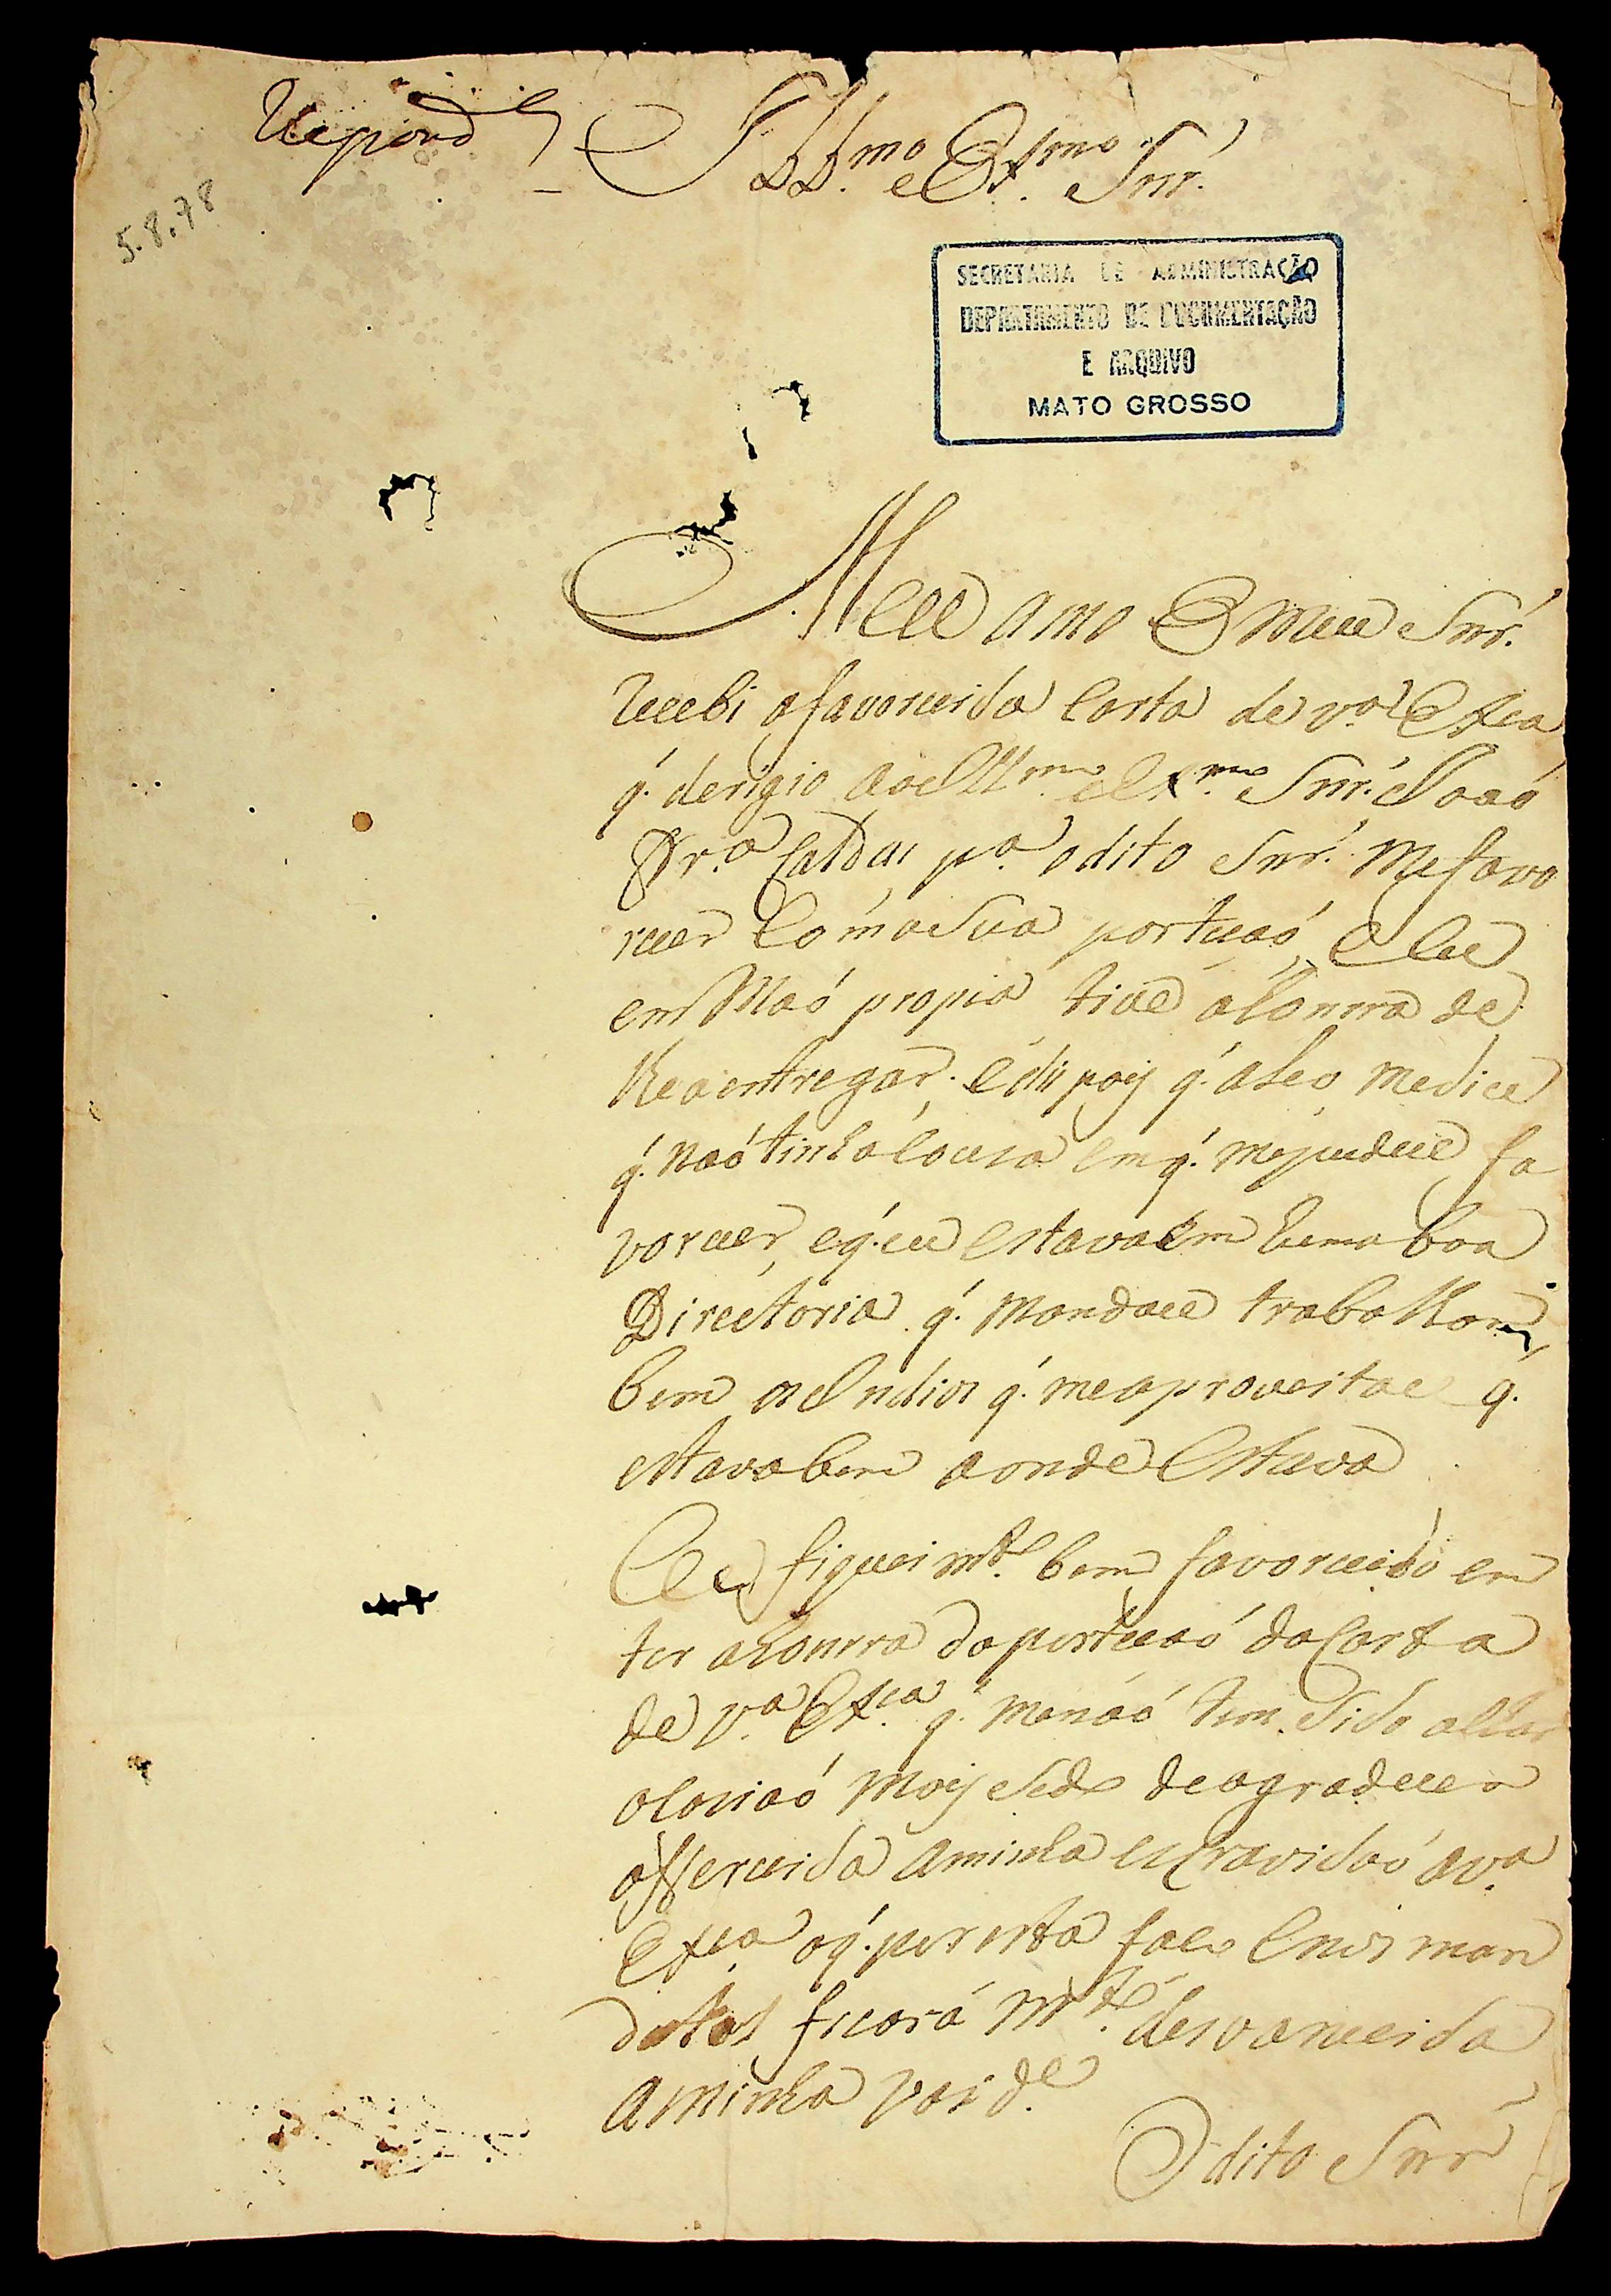 Respond.
Ill.mo e Ex.mo Snr.
5.8.78
SECRETARIA DE ADMINISTRAÇÃO
DEPARTAMENTO DE DOCUMENTAÇÃO
E ARQUIVO
MATO GROSSO
Meu amo e meu Snr.
Recebi a favorecida Carta de V.a Exca
q. derigio ao Ill.mo e Ex.mo Snr. Joaó
Pr.a Caldas p.a o dito Snr. me favo
recer Com a Sua porteçaó e eu
em Maó propia tive a honrra de
lhe a entregar. e dis pois q. a leo me dice
q. naó tinha couza em q. me pudece fa
vorecer, e q. eu estava em huma boa
Directoria q. Mandace trabalhar
bem os Indios q. me aproveitace q.
estava bem aonde Estava
Eu fiquei m.to bem favorecido em
ter a honrra da porteçaó da Carta
de V.a Ex.ca q. me naó tem sido
ocaziaó mais se de agradecer
offerecida a minha escravidaó a V.a
Exca o q. por esta faço e nos man
datos ficará M.to desvanecida
a minha vaid.e
O dito Snr